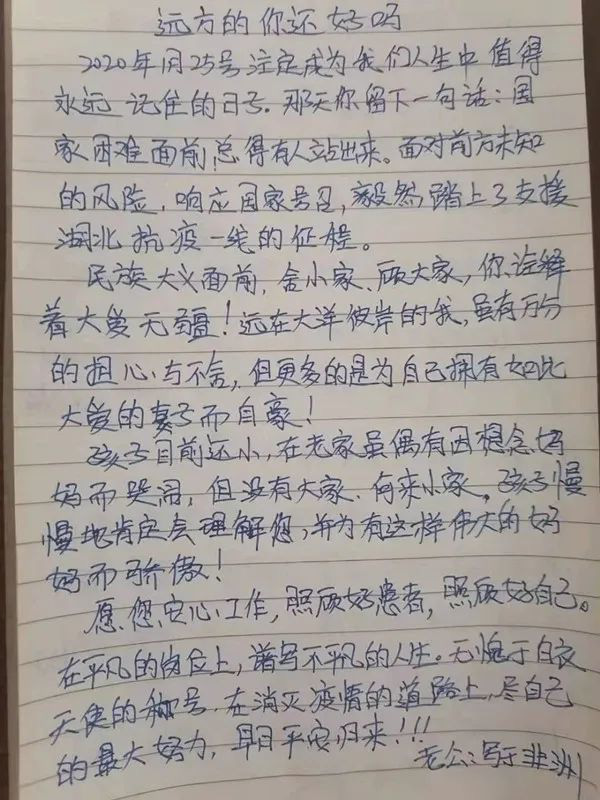 远方的你还好吗
2020年1月25号注定成为我们人生中值得
永远记住的日子. 那天你留下一句话：国
家困难面前,总得有人站出来。面对前方未知
的风险, 响应国家号召, 毅然踏上了支援
湖北抗疫一线的征程。
民族大义面前, 舍小家、顾大家, 你诠释
着大爱无疆！远在大洋彼岸的我, 虽有万分
的担心与不舍, 但更多的是为自己拥有如此
大爱的妻子而自豪！
孩子目前还小, 在老家虽偶有因想念妈
妈而哭闹, 但没有大家、何来小家。孩子慢
慢地肯定会理解您, 并为有这样伟大的妈
妈而骄傲！
愿您安心工作, 照顾好患者, 照顾好自己。
在平凡的岗位上, 谱写不平凡的人生。无愧于白衣
天使的称号, 在消灭疫情的道路上, 尽自己
的最大努力, 早日平安归来！！！
老公：写于非洲